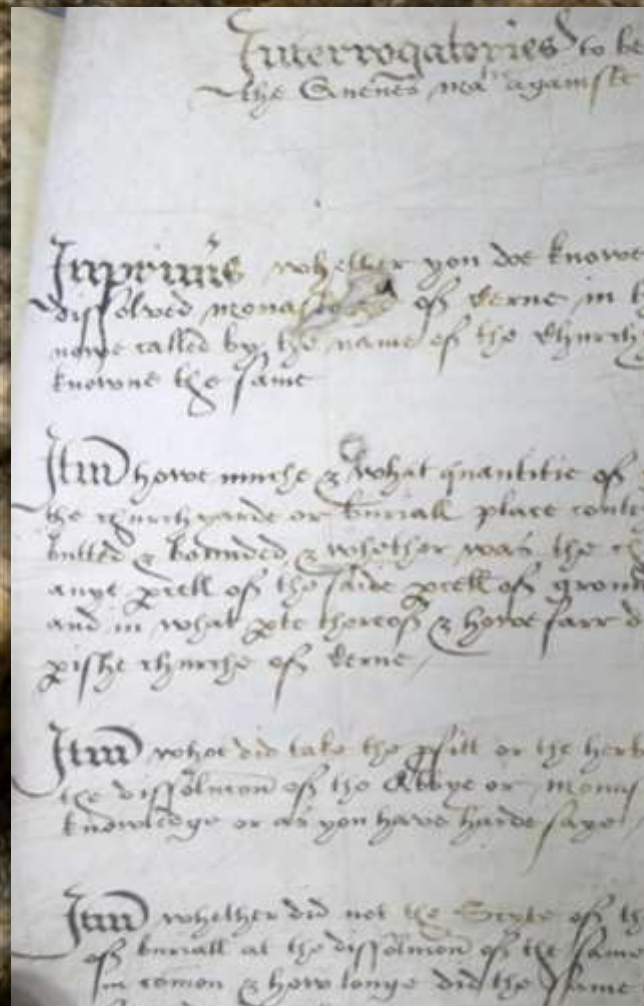 Interrogatories to be
the Quenes ma^ts againste
Inprimis whether you doe knowe
dissolved monas of Cerne in
nowe called by the name of the Church
knowne the same
Itm howe muche & what quantitie of
the churchyarde or buriall place conte
butted & bounded & whether was the
anye pcell of the saide pcell of groun
and in what pte thereof & howe farr d
pishe churche of Cerne
Itm who did take the pfitt or the herb
the dissolucon of the Abbye or mony
knowledge or as you have harde saye
Itm whether did not the Scyte of th
of buriall at the dissolucon of the same
in comon & howe longe did the same